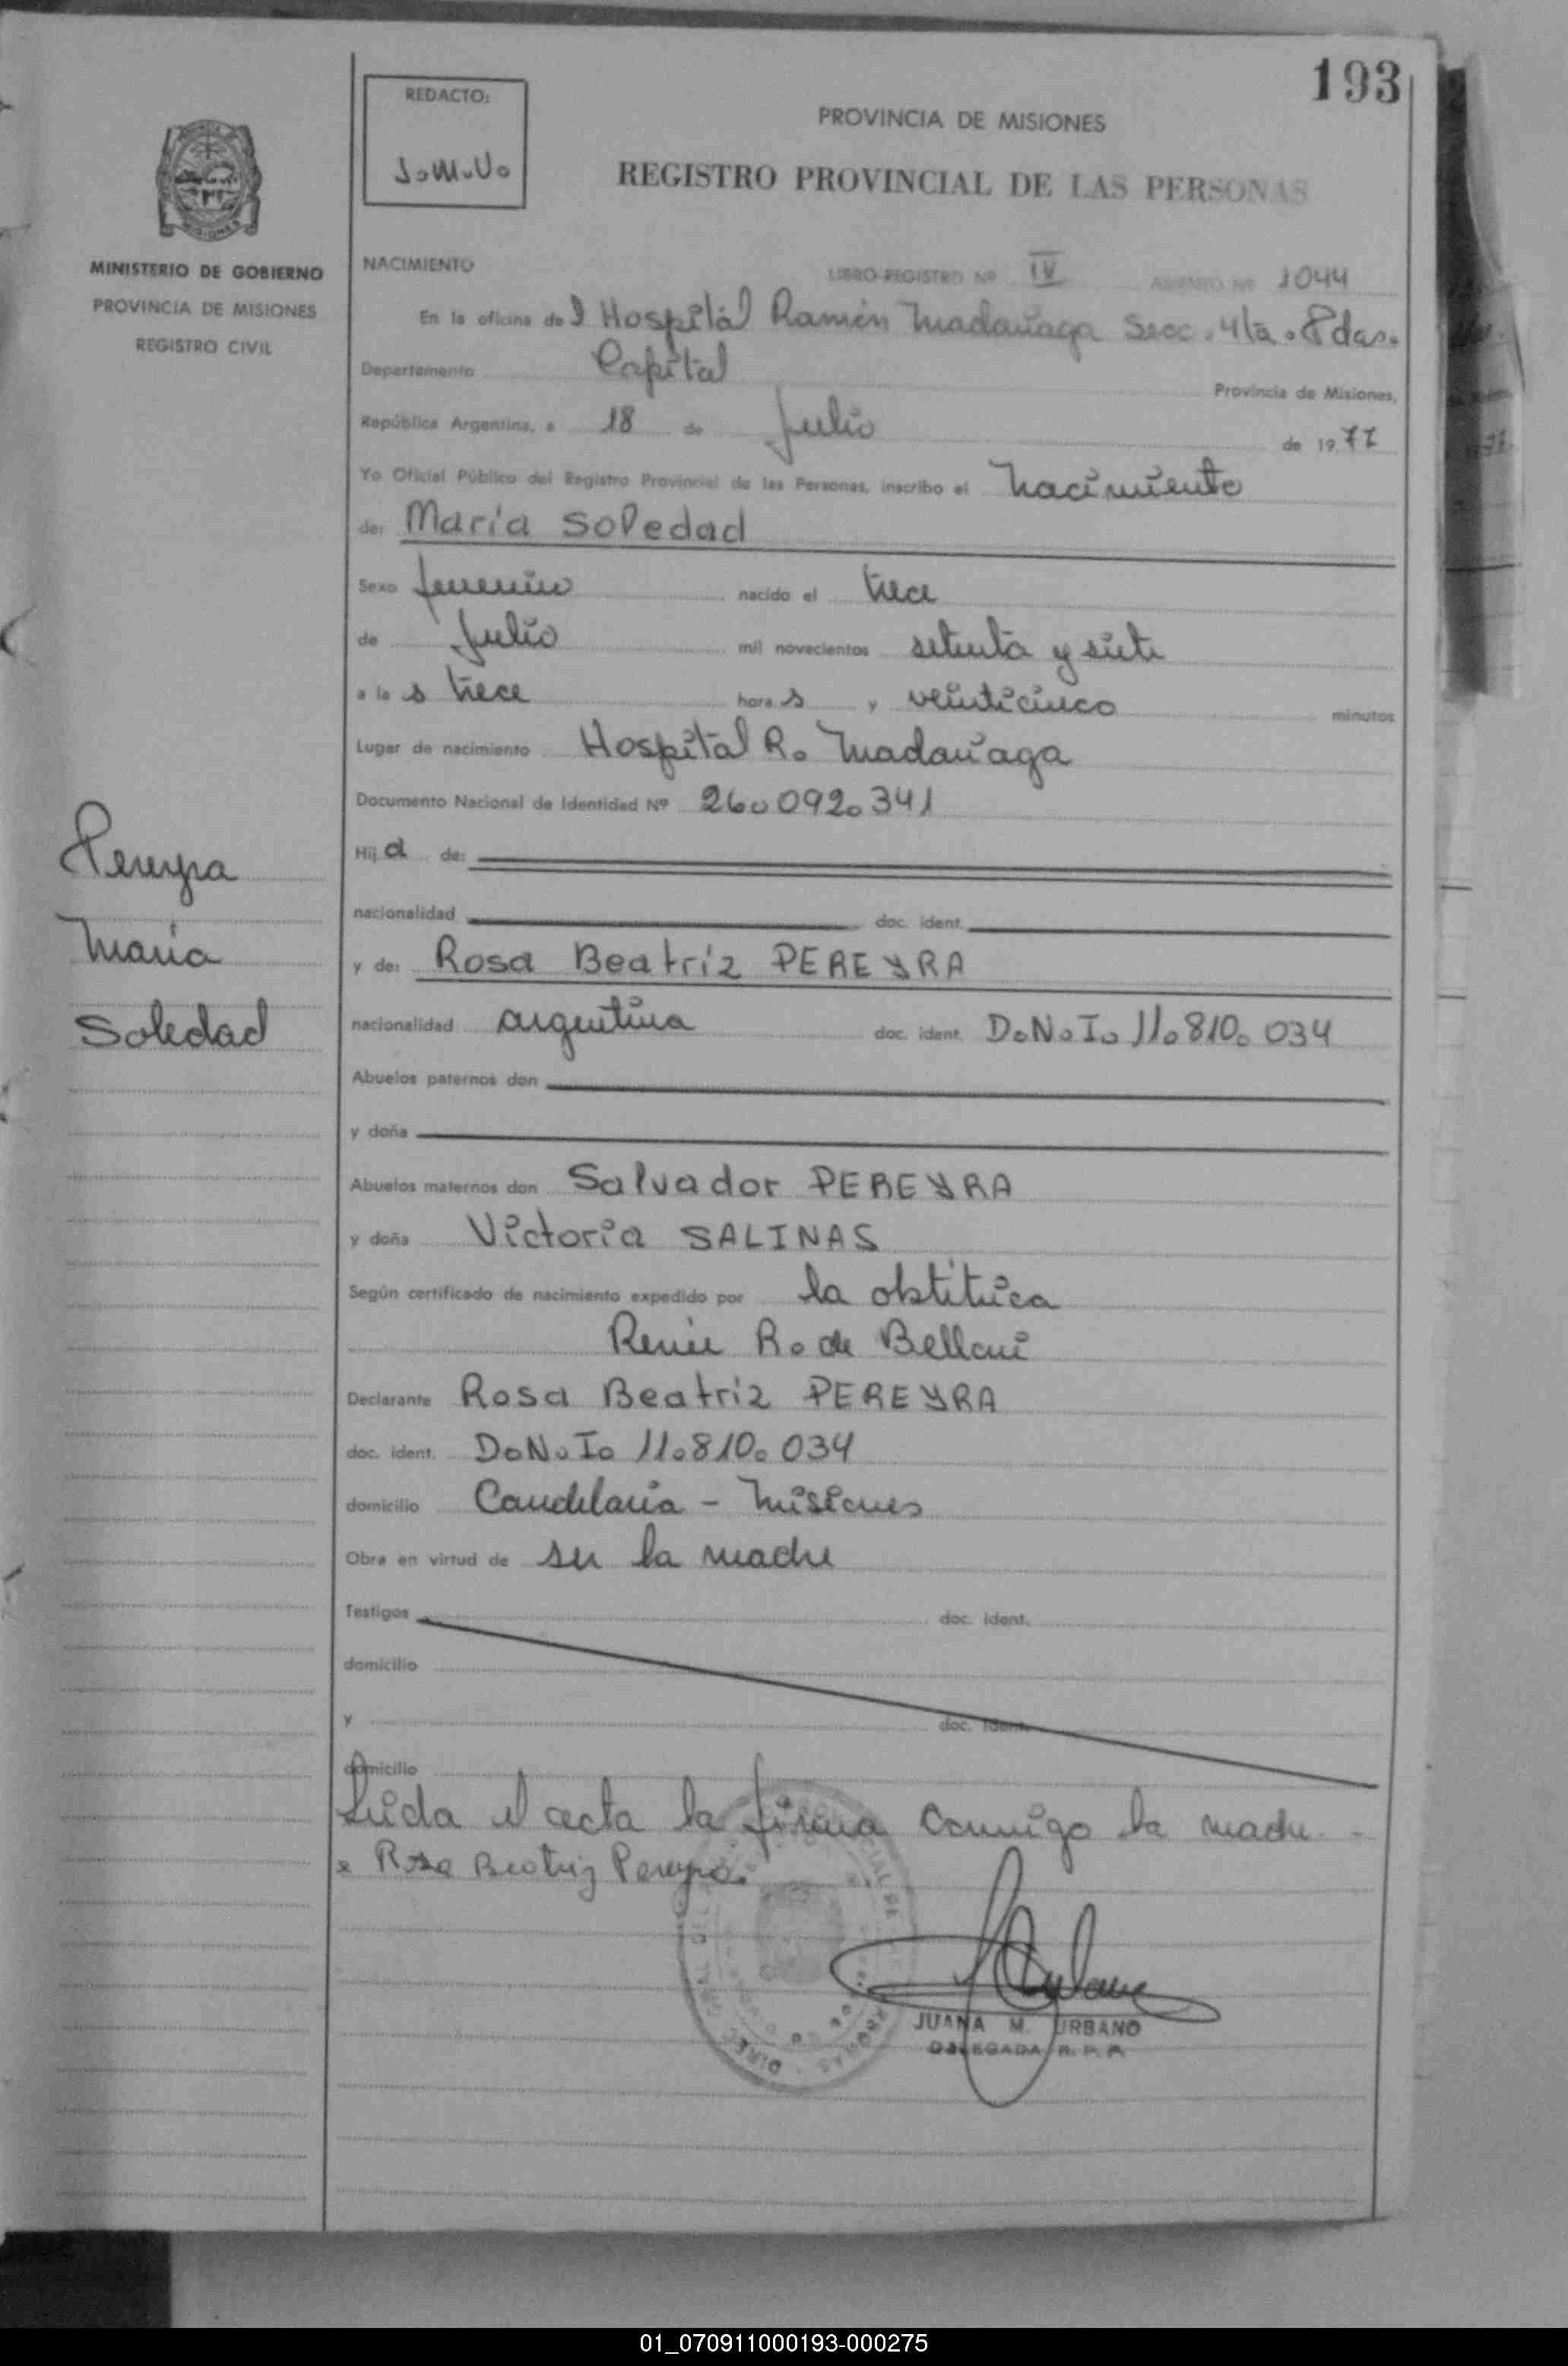 193
REDACTO:
J.M.U.
PROVINCIA DE MISIONES
REGISTRO PROVINCIAL DE LAS PERSONAS
MINISTERIO DE GOBIERNO
PROVINCIA DE MISIONES
REGISTRO CIVIL
NACIMIENTO LIBRO-REGISTRO Nº IV ASIENTO Nº 1044
En la oficina del Hospital Ramón Madariaga Secc. 4ta. Pdas.
Departamento Capital Provincia de Misiones,
República Argentina, a 18 de Julio de 1977
Yo Oficial Público del Registro Provincial de las Personas, inscribo el nacimiento
de: Maria Soledad
Sexo femenino nacido el trece
de Julio mil novecientos setenta y siete
a las trece horas y veinticinco minutos
Lugar de nacimiento Hospital R. Madariaga
Documento Nacional de Identidad Nº 26.092.341
Hija de:
nacionalidad doc. ident.
y de: Rosa Beatriz PEREYRA
nacionalidad argentina doc. ident. D.N.I. 11.810.034
Abuelos paternos don
y doña
Abuelos maternos don Salvador PEREYRA
y doña Victoria SALINAS
Según certificado de nacimiento expedido por la obstétrica
R. de
Declarante Rosa Beatriz PEREYRA
doc. ident. D.N.I. 11.810.034
domicilio Candelaria - Misiones
Obra en virtud de ser la madre
Testigos doc. ident.
domicilio
y doc. ident.
domicilio
Leida el acta la firma conmigo la madre. -
x Rosa Beatriz Pereyra.
JUANA M. URBANO
DELEGADA R. P. P.
Pereyra
Maria
Soledad
01_070911000193-000275